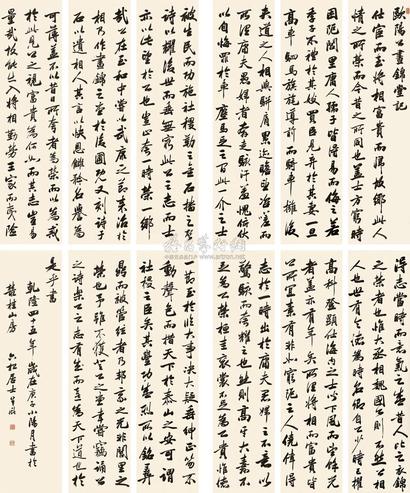 歐陽公晝錦堂記
仕宦而至將相富貴而歸故鄉此人
情之所榮而今昔之所同也蓋士方窮時
困阨閭里庸人孺子皆得易而侮之若
季子不禮於其嫂買臣見棄於其妻一旦
高車駟馬旗旄導前而騎卒擁後
夾道之人相與駢肩累迹瞻望咨嗟而
所謂庸夫愚婦者奔走駭汗羞愧俯伏
以自悔罪於車塵馬足之間此一介之士
得志當時而意氣之盛昔人比之衣錦
之榮者也惟大丞相魏國公則不然公相
人也世有令德為時名卿自公少時已擢
高科登顯仕海內之士聞下風而望餘光
者蓋亦有年矣所謂將相而富貴皆
公所宜素有非如窮阨之人僥倖得
志於一時出於庸夫愚婦之不意以
驚駭而夸耀之也然則高牙大纛不足
為公榮桓圭袞裳不足為公貴惟德
被生民而功施社稷勒之金石播之聲
詩以耀後世而垂無窮此公之志而士
亦以此望於公也豈止夸一時榮一鄉
哉公在至和中嘗以武康之節來治於
相乃作晝錦之堂於後圃既又刻詩于
石以遺相人其言以快恩讎矜名譽為
可薄蓋不以昔人所夸者為榮而以為戒
於此見公之視富貴為何如而其志豈易
量哉故能出入將相勤勞王家而夷險
一節至於臨大事決大議垂紳正笏不
動聲色而措天下於泰山之安可謂
社稷之臣矣其豐功盛烈所以銘彝
鼎而被絃歌者乃邦家之光非閭里之
榮也予雖不獲登公之堂幸嘗竊誦公
之詩樂公之志有成而喜為天下道也於
是乎書
乾隆四十五年歲在庚子小陽月書於
桂山房 六松居士